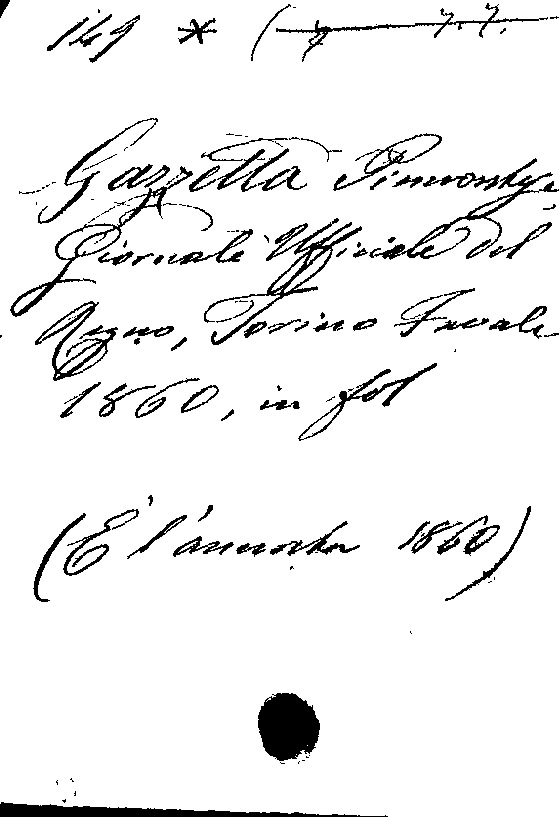 149 * ( 7 7.7.
Gazzetta Piemontese
Giornale Ufficiale del
Regno, Torino Favale
1860, in fol
(E' l'annata 1860)